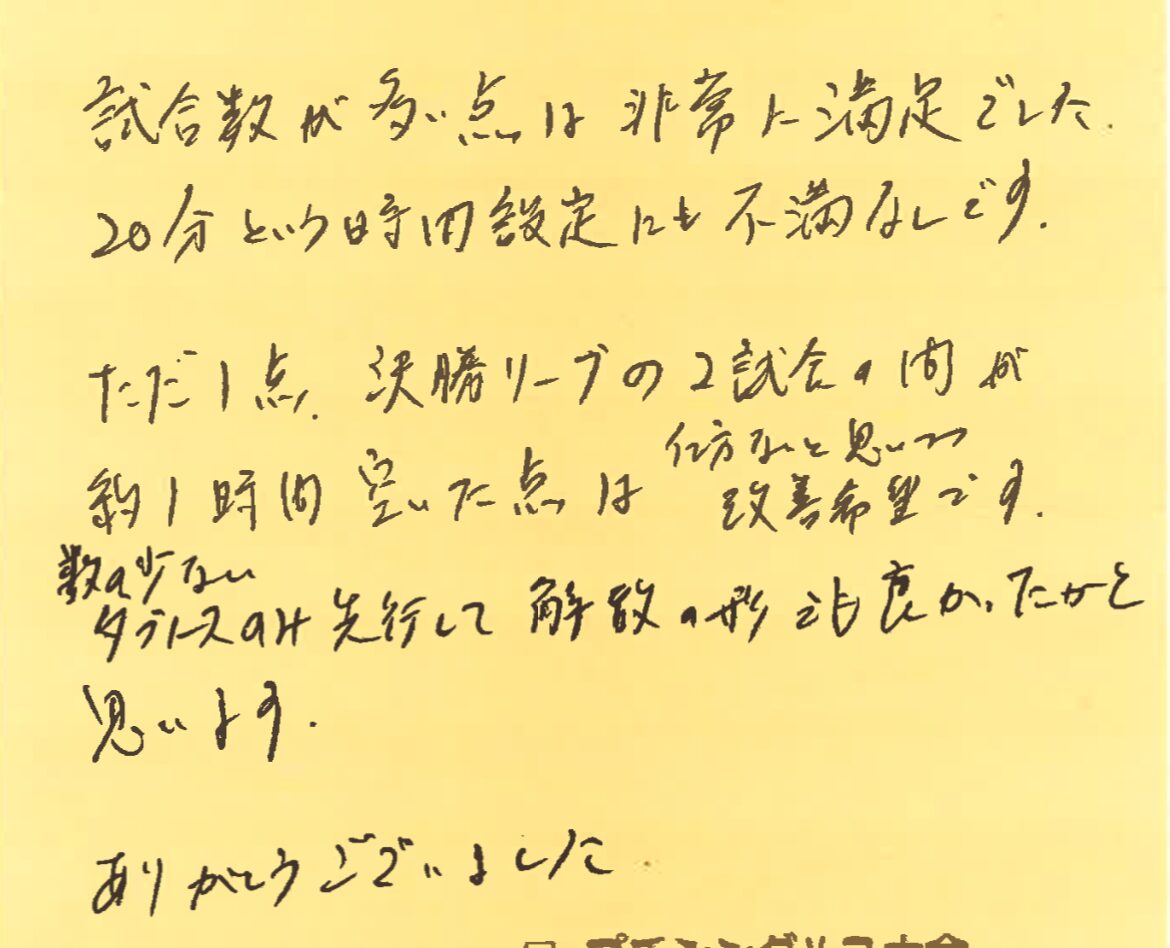 試合数が多い点は非常に満足でした.
20分という時間設定にも不満なしです.
ただ1点、決勝リーグの2試合の間が
仕方ないと思いつつ
約1時間空いた点は改善希望です.
数の少ない
のみ先行して解散の形でも良かったかと
思います.
ありがとうございました